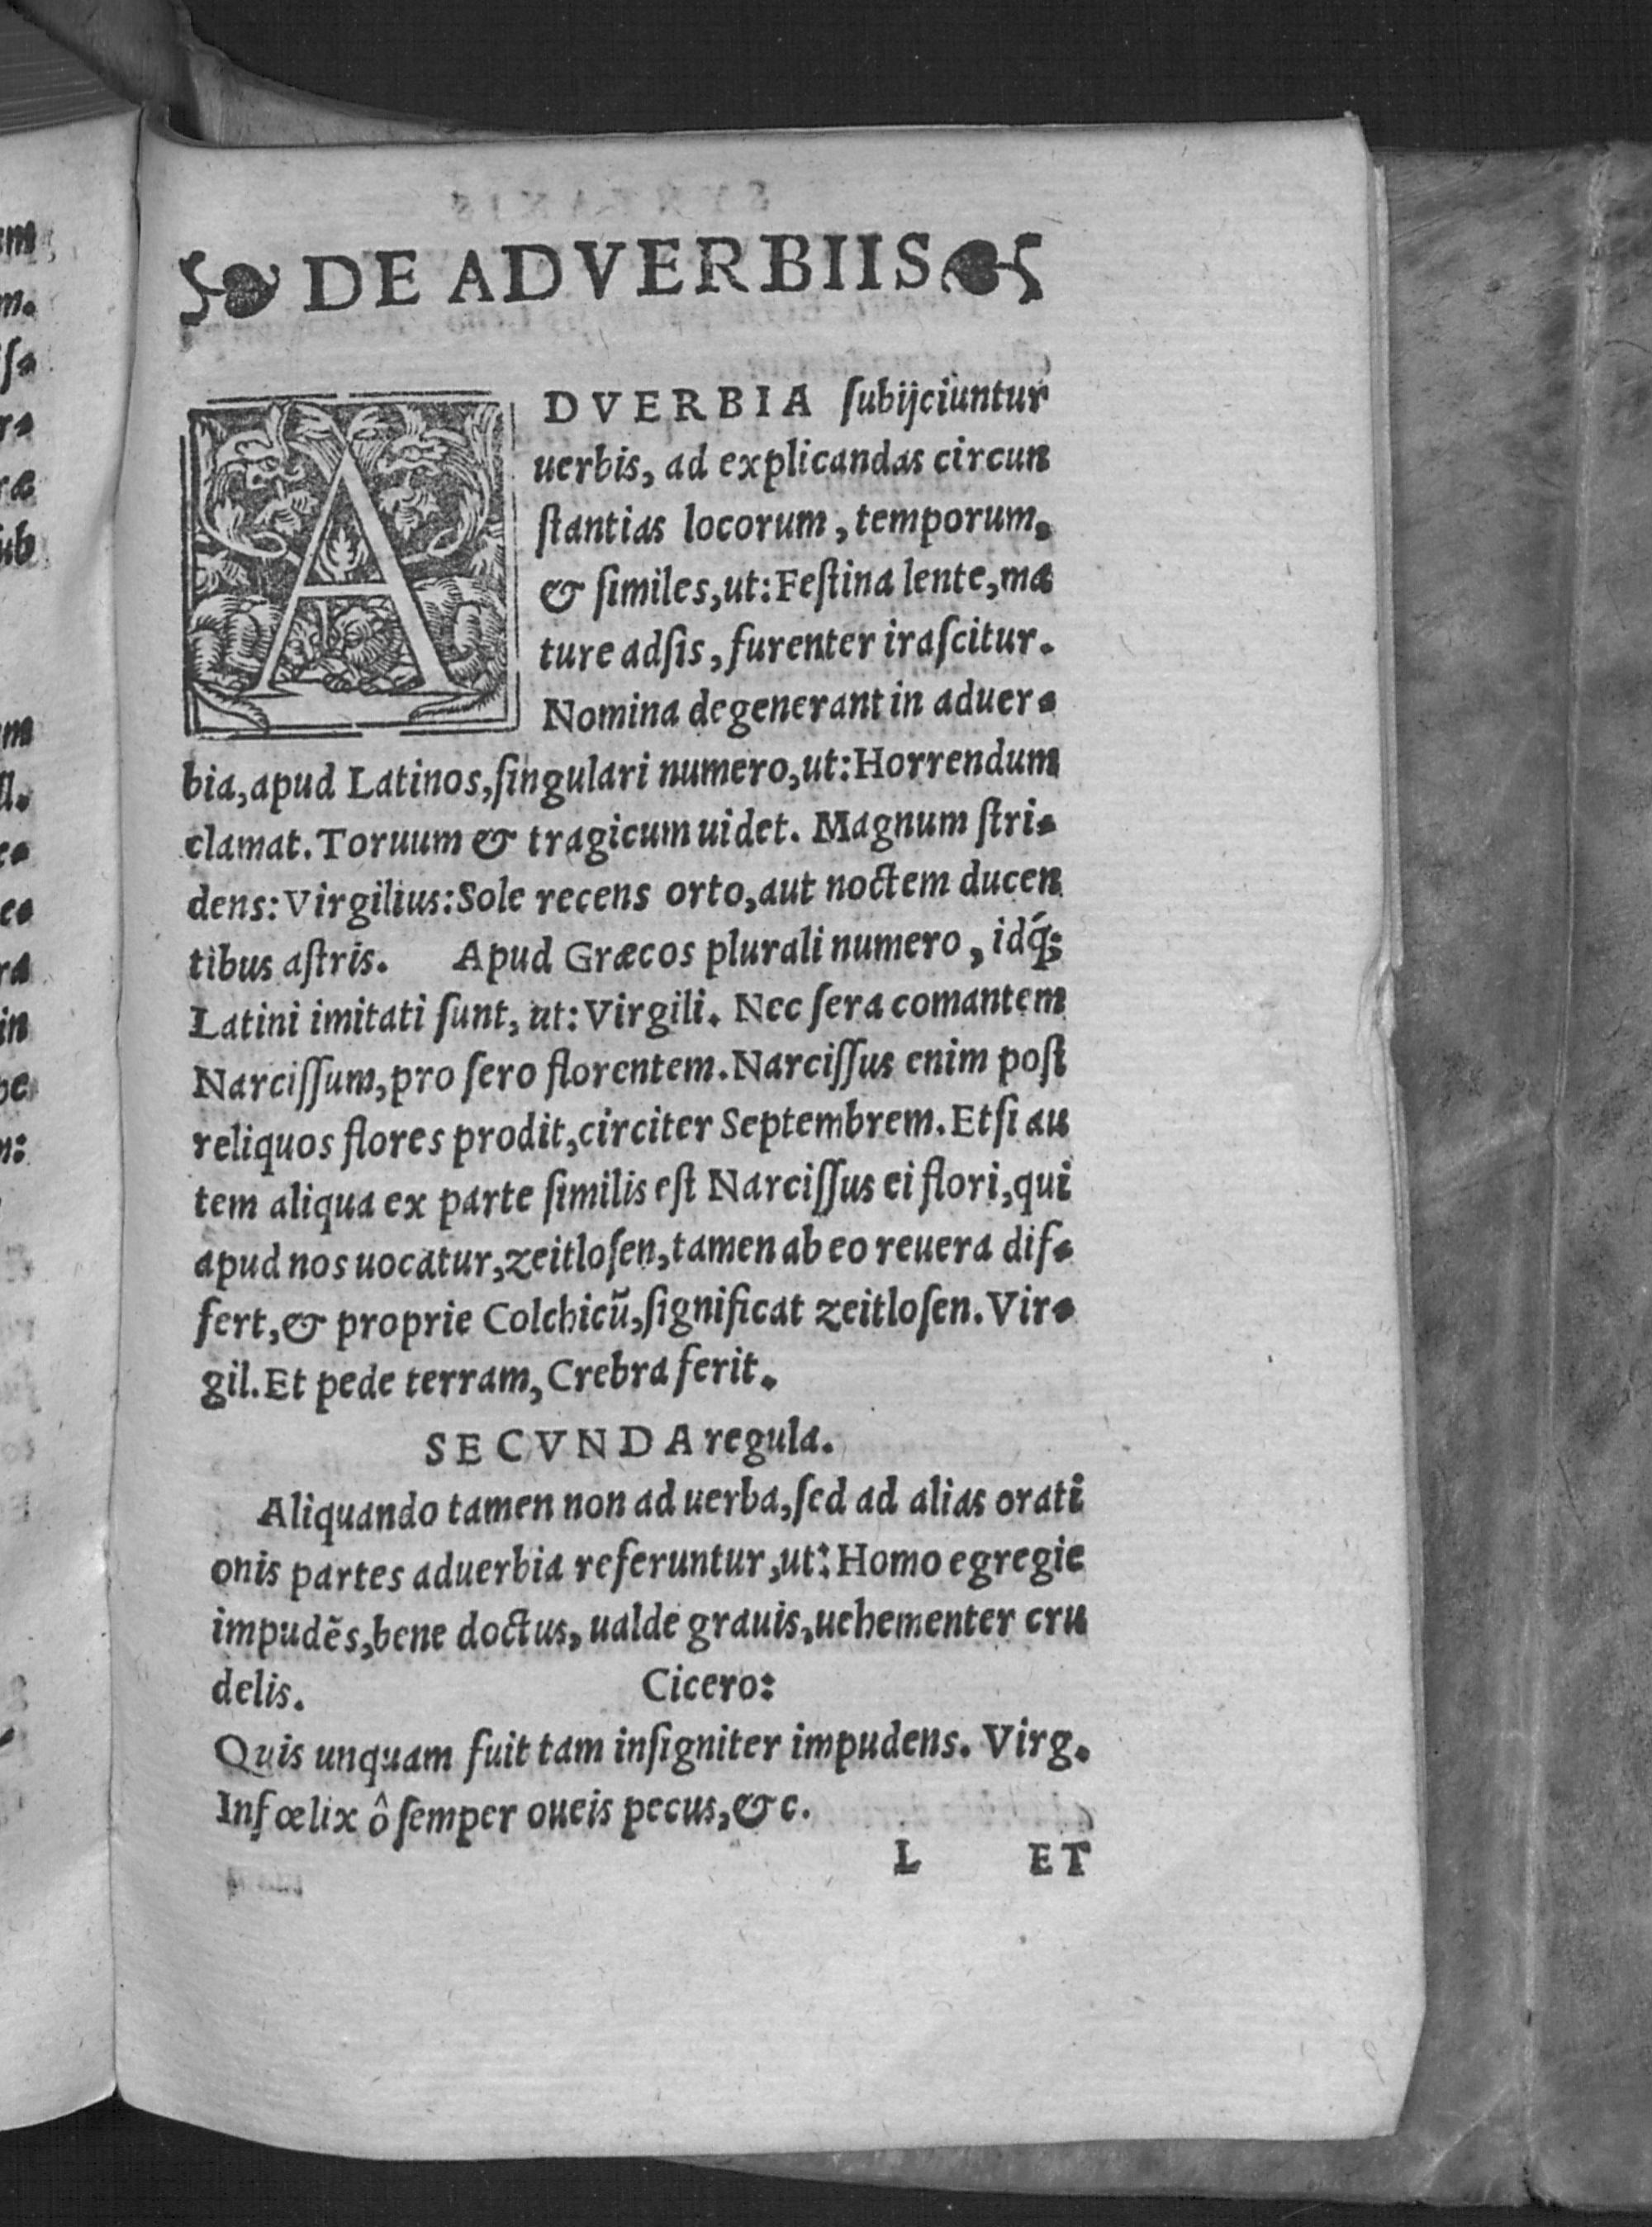 DE ADVERBIIS
ADVERBIA ſubijciuntur
uerbis, ad explicandas circun
ſtantias locorum, temporum,
& ſimiles, ut: Feſtina lente, ma
ture adſis, furenter iraſcitur.
Nomina degenerant in aduer-
bia, apud Latinos, ſingulari numero, ut: Horrendum
clamat. Toruum & tragicum uidet. Magnum ſtri-
dens: Virgilius: Sole recens orto, aut noctem ducen
tibus aſtris. Apud Græcos plurali numero, idq́;
Latini imitati ſunt, ut: Virgili. Nec ſera comantem
Narciſſum, pro ſero florentem. Narciſſus enim poſt
reliquos flores prodit, circiter Septembrem. Etſi au
tem aliqua ex parte ſimilis eſt Narciſſus ei flori, qui
apud nos uocatur, zeitloſen, tamen ab eo reuera dif-
fert, & proprie Colchicū, ſignificat zeitloſen. Vir-
gil. Et pede terram, Crebra ferit.
SECVNDA regula.
Aliquando tamen non ad uerba, ſed ad alias orati
onis partes aduerbia referuntur, ut: Homo egregie
impudẽs, bene doctus, ualde grauis, uehementer cru
delis. Cicero:
Quis unquam fuit tam inſigniter impudens. Virg.
Infœlix ô ſemper oueis pecus, &c.
L ET